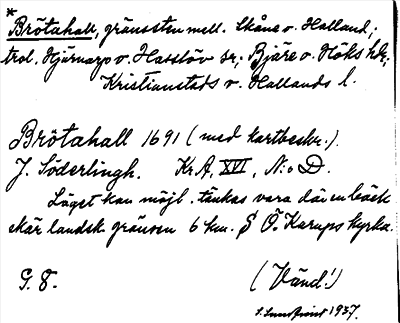 *
Brötahall, gränssten mell. Skåne o. Halland;
trol. Hjärnarp o. Hasslöv sr; Bjäre o. Höks hdr;
Kristianstads o. Hallands l.
Brötahall 1691 (med kartbeskr.).
J. Söderlingh. Kr.A, XVI, N:o D.
Läget kan möjl. tänkas vara där en bäck
skär landsk. gränsen 6 km. S Ö. Karups kyrka.
G. 8. (Vänd!)
S. Sundfeint 1937.